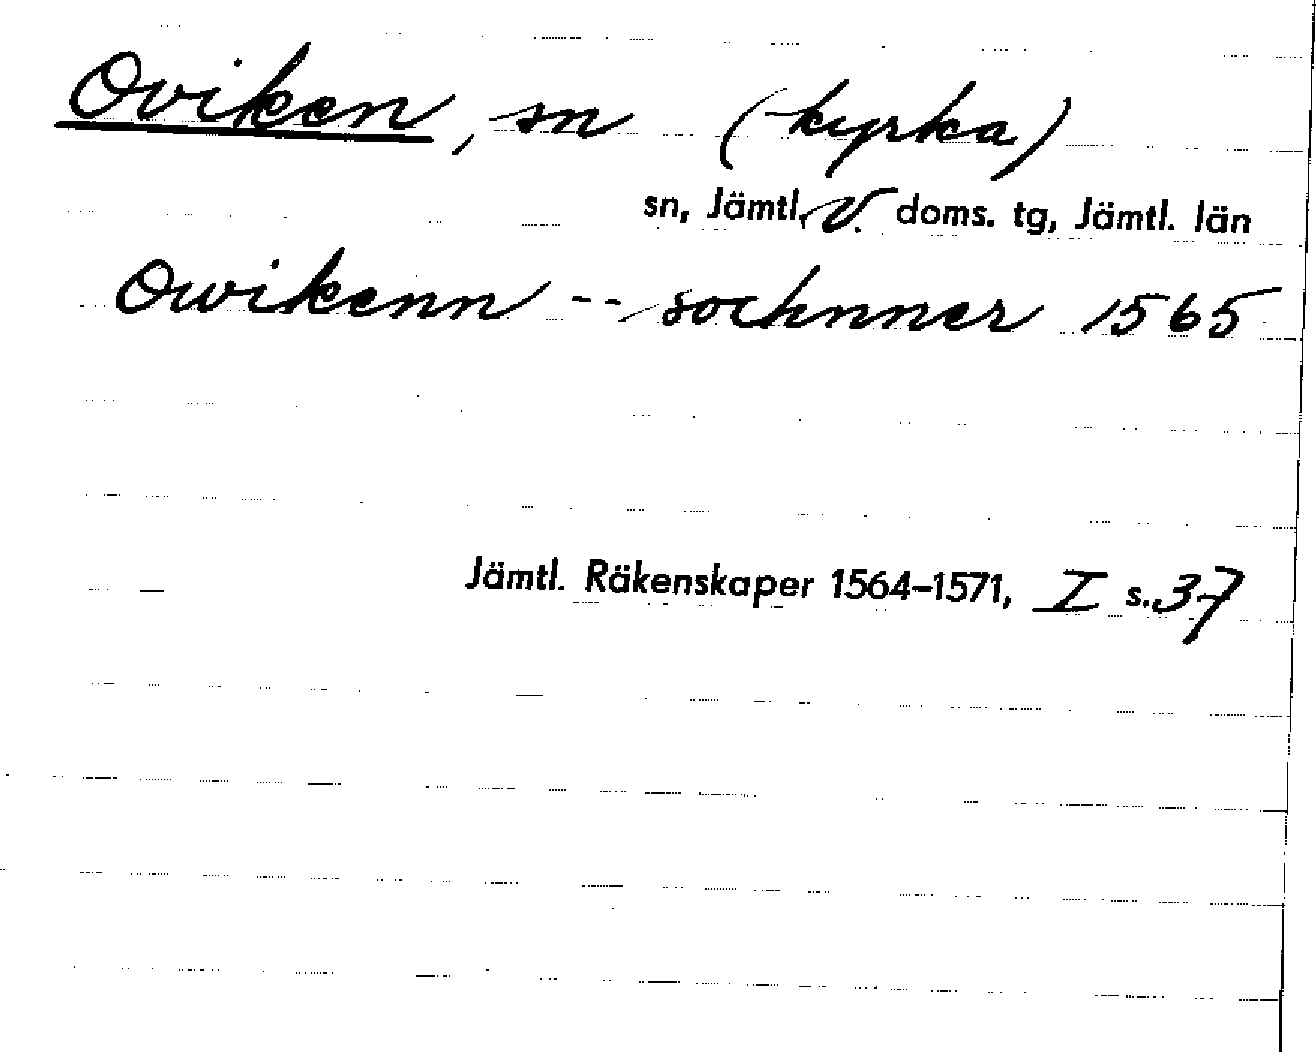 Oviken, sn (kyrka)
sn, Jämtl. V. doms. tg, Jämtl. län
Owikenn -- sochnner 1565
Jämtl. Räkenskaper 1564-1571, I s. 37